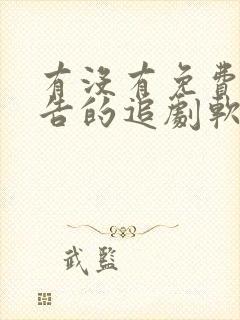 有沒有免費
告的追劇軟
武監